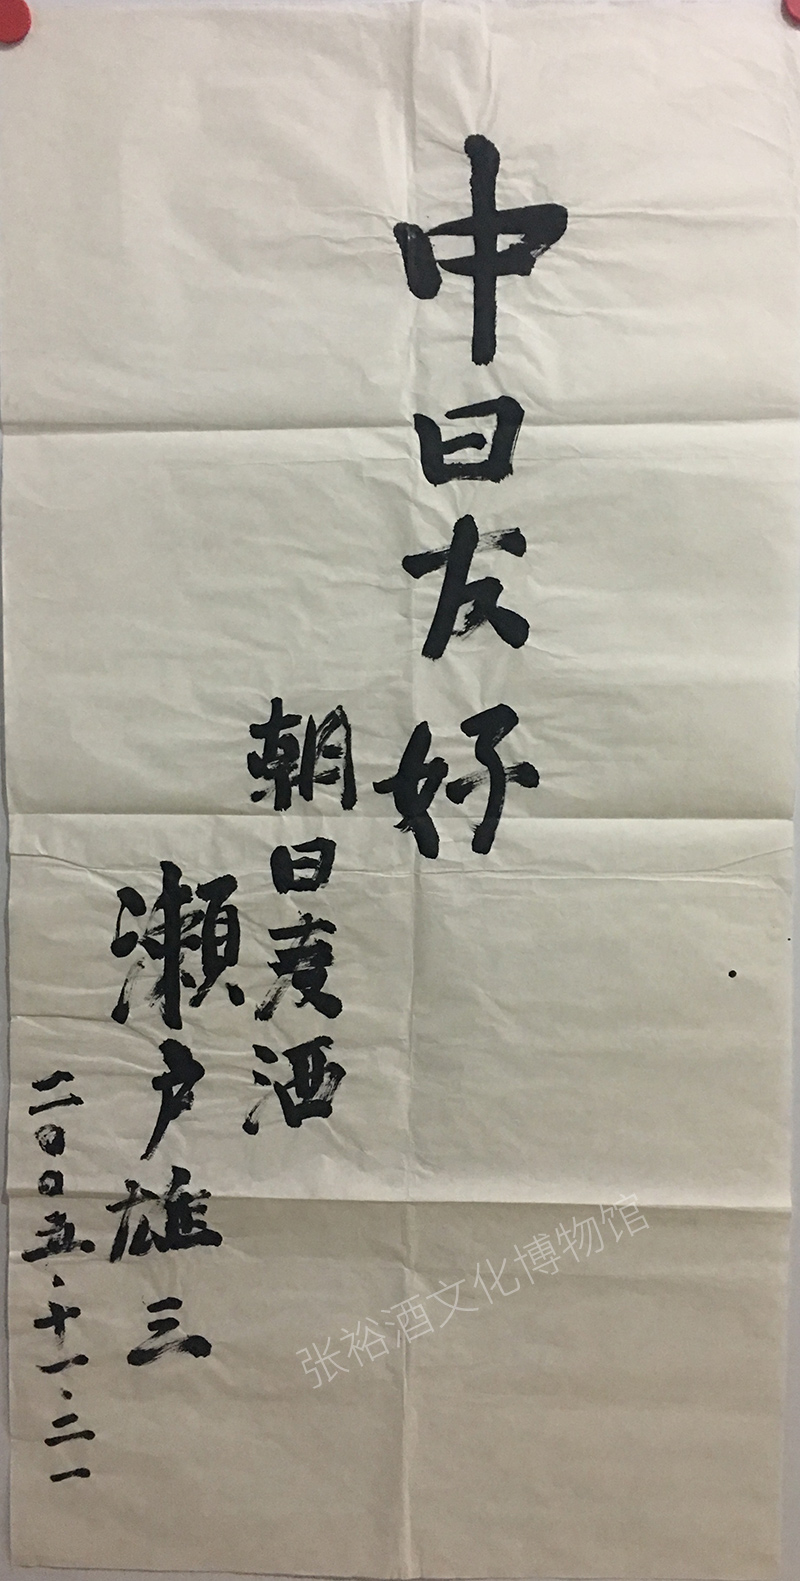 中日友好
朝日麦酒
瀬户雄三
二〇〇五.十一.二一
张裕酒文化博物馆